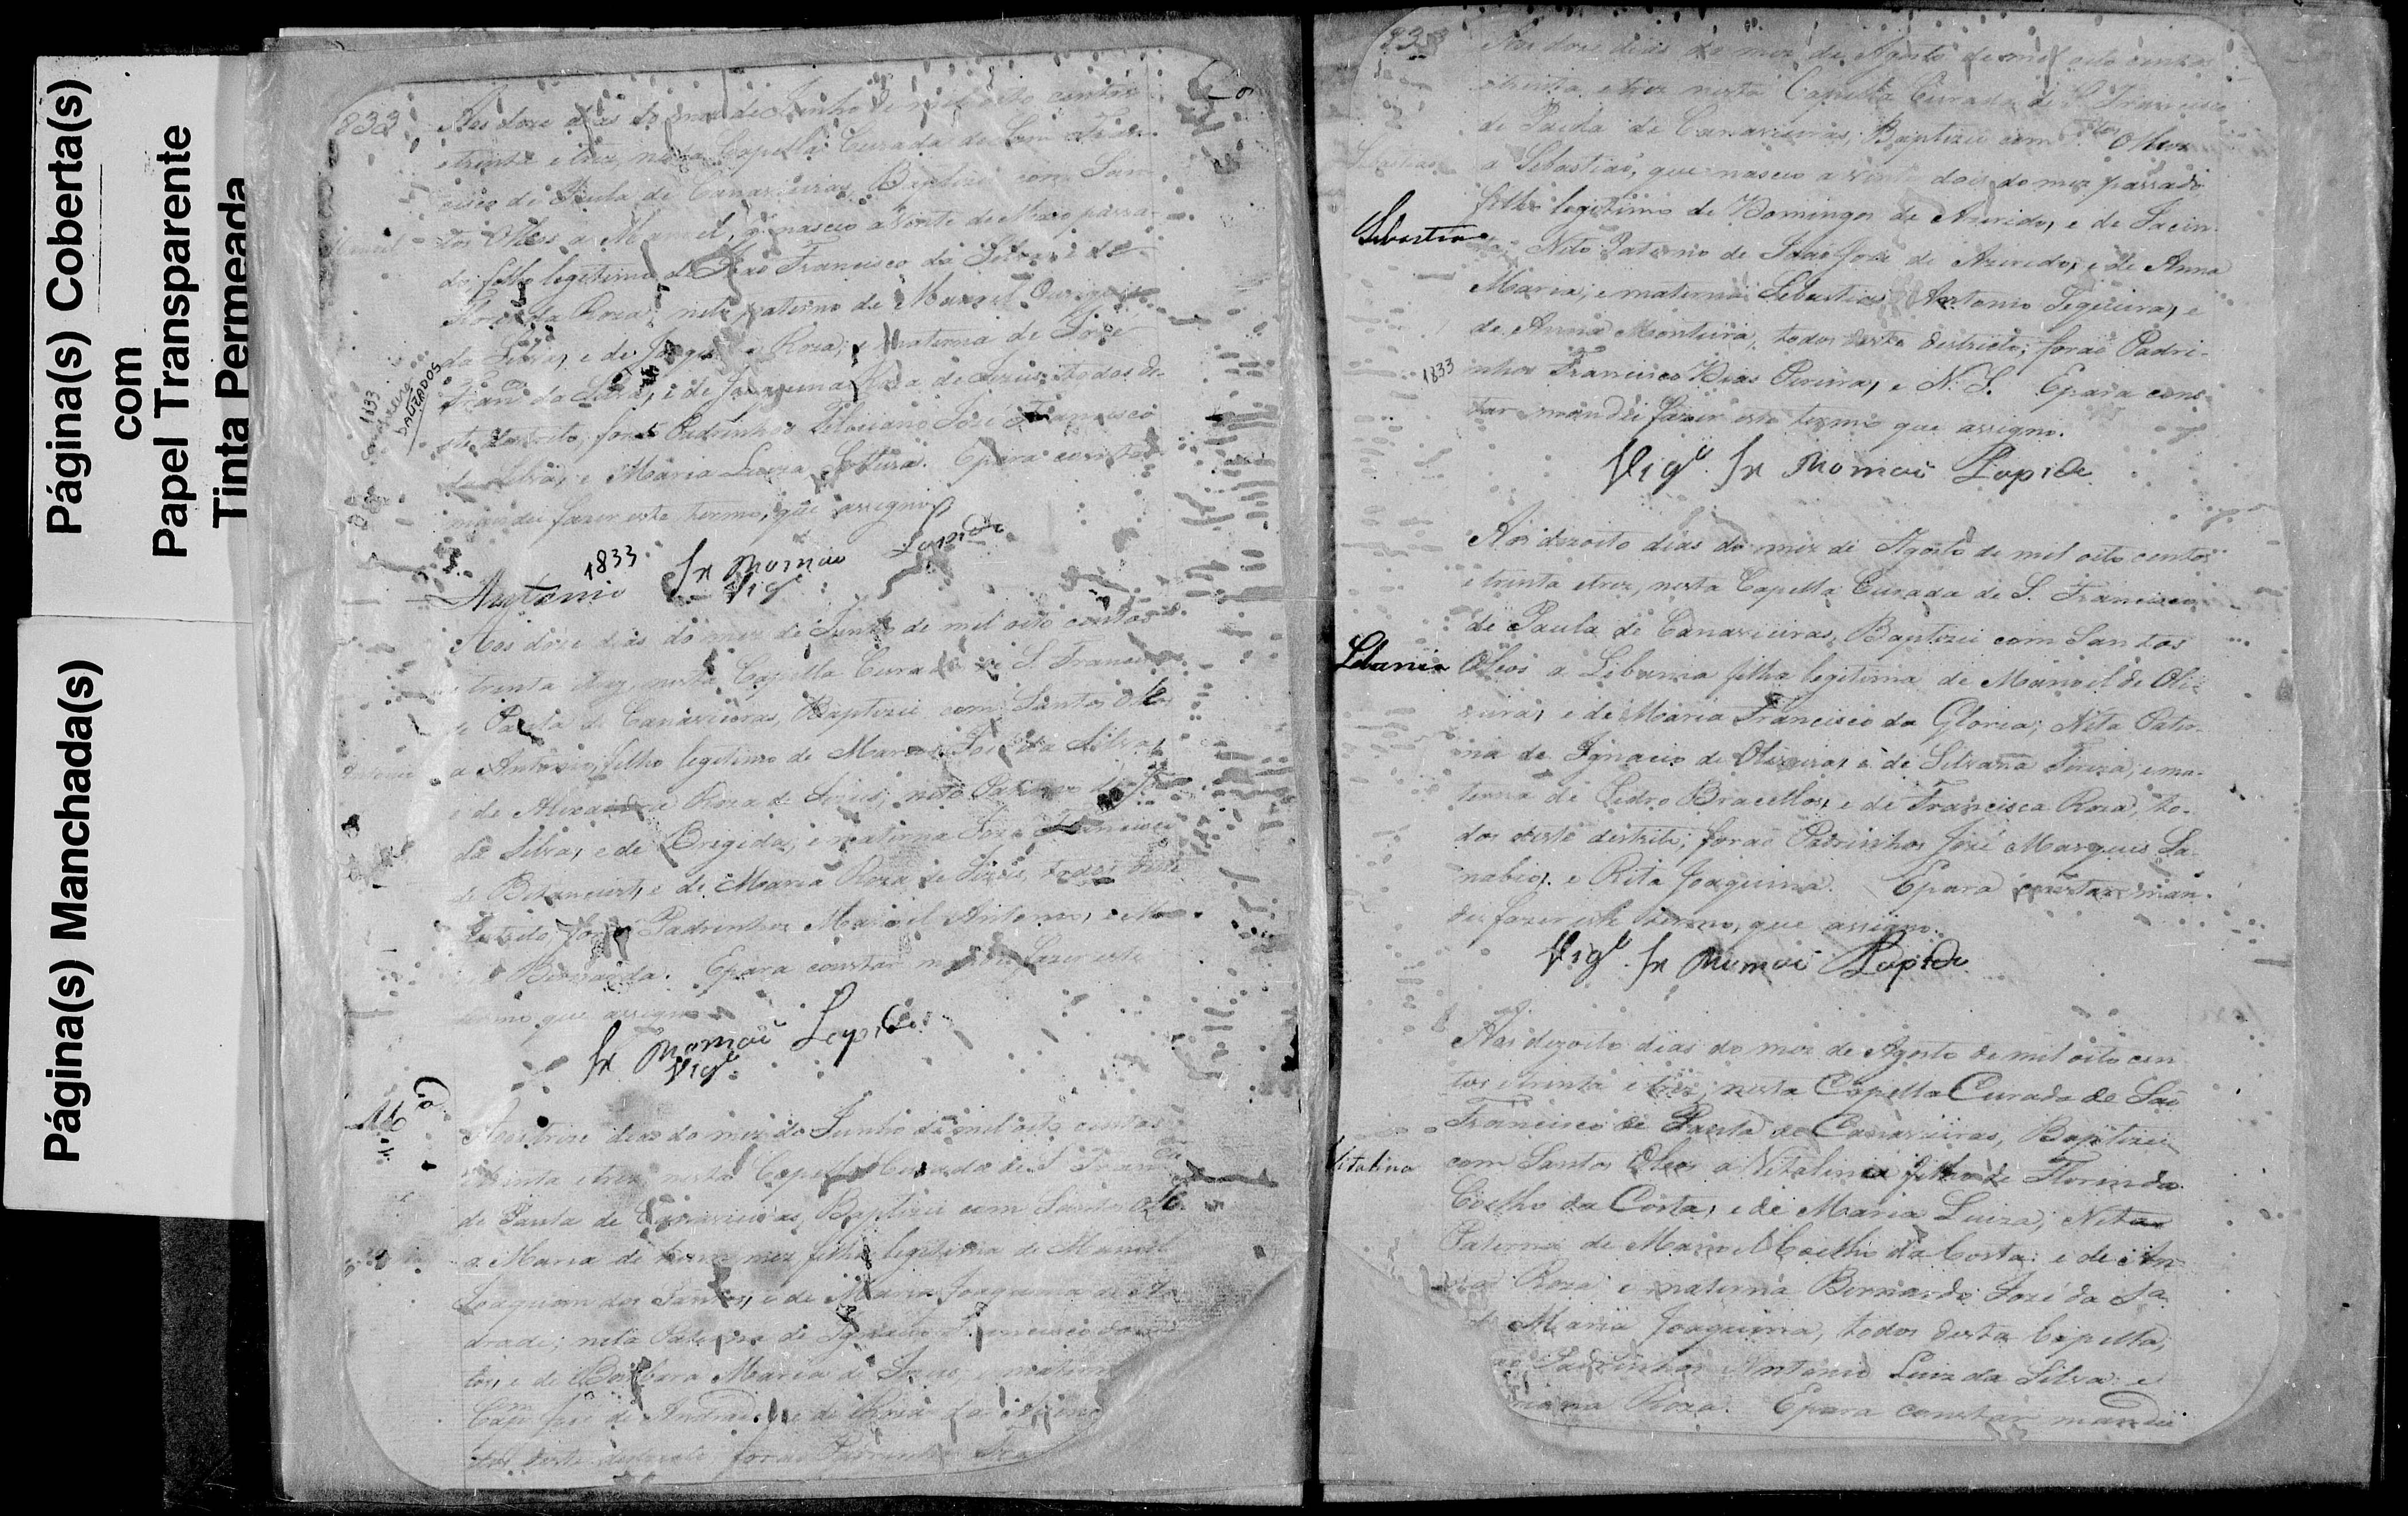 Página(s) Coberta(s)
com
Papel Transparente
Tinta Permeada
Página(s) Manchada(s)
1833
Aos doze dias do mez de Junho de mil oito centos
e trinta e trez, nesta Capella Curada de Sam Fran-
cisco de Paula de Canavieiras, Baptizei com San-
tos Oleos a Manoel, q nasceo a vinte de Maio passa-
do, filho legitimo de João Francisco da Silva, e de
Roza; neto paterno de Manoel
da Silva, e de Roza; e materna de José
Franco da Silva, e de Joaquina Roza de Jezus, todos de-
ste destrito, forão Padrinhos Feliciano José Francisco
da Silva, e Maria Luiza. Epara constar
mandei fazer este termo, que assigno.
1833
BATIZADOS
Manoel
1833
Antonio
Fr Thomai Lapide
Vigr
Aos doze dias do mez de Junho de mil oito centos
e trinta e trez, nesta Capella Curada de S. Francisco
de Paula de Canavieiras, Baptizei com Santos Oleos
a Antonio, filho legitimo de Marcos José da Silva,
e de Alexandra Roza de Jezus; neto Paterno de
da Silva, e de Brigida; e materna José Francisco
de Bitancurt, e de Maria Roza de Jezus, todos deste
destrito, forão Padrinhos Manoel Antonio, e Ma-
Bernarda. Epara constar mandei fazer este
termo que assigno.
Fr Thomai Lapide
Vigr
Ma
Aos treze dias do mez de Junho de mil oito centos
e trinta e trez, nesta Capella Curada de S. Franco
de Paula de Canavieiras, Baptizei com Santos Oleos
a Maria de hum mez filha legitima de Manoel
Joaquim dos Santos, e de Maria Joaquina de An-
drade; neta Paterna de Ignacio Francisco dos San-
tos, e de Barbara Maria de Jezus, e materna
José de Andrade, e de Roza
deste destrito forão Padrinhos
1833
Aos doze dias do mez de Agosto de mil oito centos
e trinta e trez nesta Capella Curada de S. Francisco
de Paula de Canavieiras, Baptizei com Stos Oleos
a Sebastião, que nasceo a vinte dois do mez passado,
filho legitimo de Domingos de Azeredo, e de Jacin-
Sebastião
ta, Neto Paterno de João José de Azeredo, e de Anna
Maria; e materna Sebastião Antonio Siqueira, e
de Anna Monteira, todos deste districto; forão Padri-
1833
nhos Francisco Dias Pereira, e N. S. Epara cons-
tar mandei fazer este termo que assigno.
Vigr Fr Thomai Lapide
Aos dezoito dias do mez de Agosto de mil oito centos
e trinta e trez, nesta Capella Curada de S. Francisco
de Paula de Canavieiras, Baptizei com Santos
Libania
Oleos a Libania filha legitima de Manoel de Oli-
veira, e de Maria Francisco da Gloria; Neta Pater-
na de Ignacio de Oliveira, e de Silvana Tereza; e ma-
terna de Pedro Bracellos, e de Francisca Roza, to-
dos deste destrito; forão Padrinhos José Marques Sa-
nabio, e Rita Joaquina. Epara constar man-
dei fazer este termo, que assigno.
Vigr Fr Thomai Lapide
Aos dezoito dias do mez de Agosto de mil oito cen-
tos e trinta e trez, nesta Capella Curada de São
Francisco de Paula de Canavieiras, Baptizei
Vitalina
com Santos Oleos a Vitalina filha de Florindo
Coelho da Costa, e de Maria Luiza; Neta
Paterna de Manoel Coelho da Costa, e de An-
na Roza e materna Bernardo José da Sa
de Maria Joaquina, todos desta Capella;
Padrinhos Antonio Luiz da Silva e
Roza. Epara constar mandei